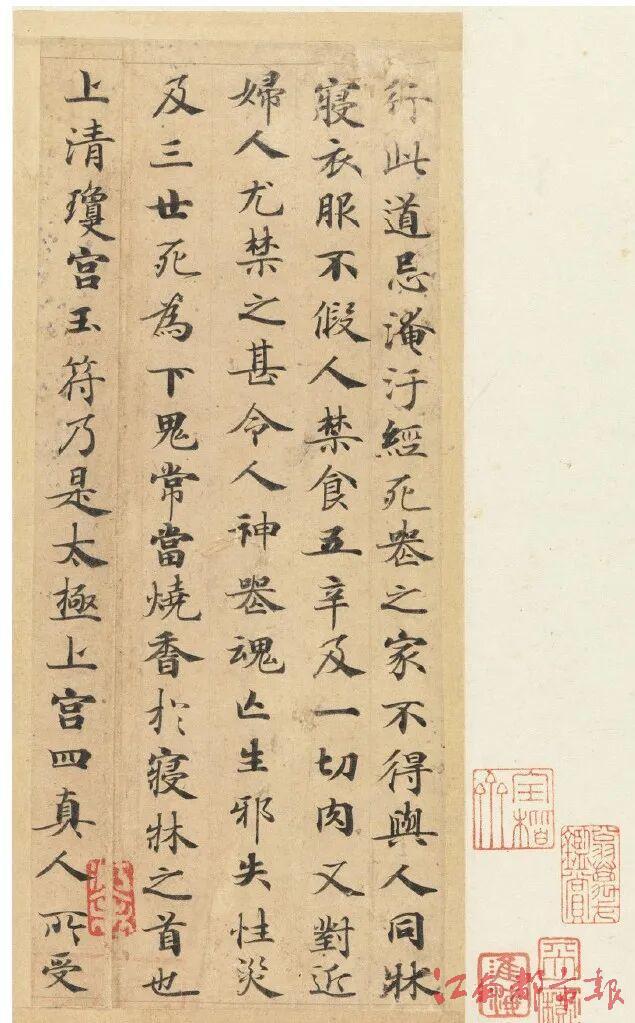 行此道忌淹汙經死喪之家不得與人同牀
寢衣服不假人禁食五辛及一切肉又對近
婦人尤禁之甚令人神喪魂亡生邪失性災
及三世死為下鬼常當燒香於寢牀之首也
上清瓊宮玉符乃是太極上宮四真人所受
江南都市報